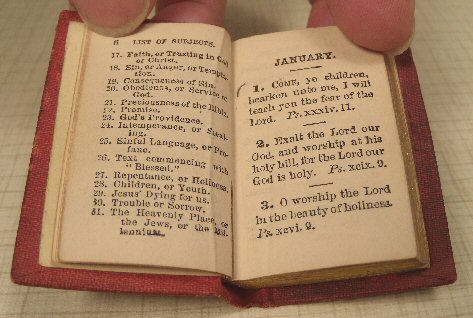 6 LIST OF SUBJECTS.
17. Faith, or Trusting in God
or Christ.
18. Sin, or Anger, or Tempta-
tion.
19. Consequences of Sin.
20. Obedience, or Service of
God.
21. Preciousness of the Bible.
22. Promise.
23. God's Providence.
24. Intemperance, or Steal-
ing.
25. Sinful Language, or Pro-
fane.
26. Text commencing with
"Blessed."
27. Repentance, or Holiness.
28. Children, or Youth.
29. Jesus' Dying for us.
30. Trouble or Sorrow.
31. The Heavenly Place, or
the Jews, or the Mil-
lennium.
JANUARY.
1. COME, ye children,
hearken unto me, I will
teach you the fear of the
Lord. Ps. xxxiv. 11.
2. Exalt the Lord our
God, and worship at his
holy hill, for the Lord our
God is holy. Ps. xcix. 9.
3. O worship the Lord
in the beauty of holiness.
Ps. xcvi. 9.